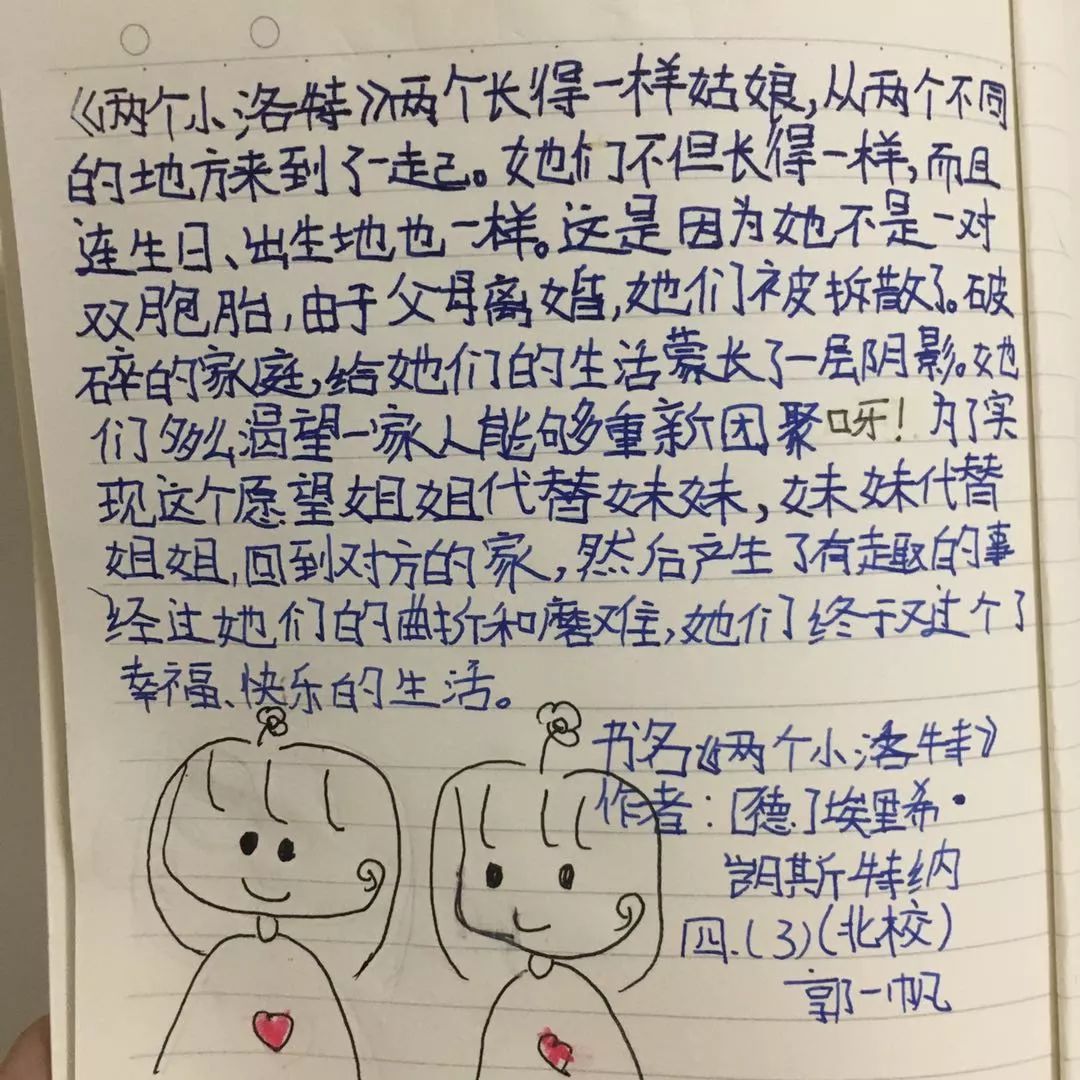 《两个小洛特》两个长得一样姑娘,从两个不同
的地方来到了一起。她们不但长得一样,而且
连生日、出生地也一样。这是因为她不是一对
双胞胎,由于父母离婚,她们被拆散了。破
碎的家庭,给她们的生活蒙长了一层阴影。她
们多么渴望一家人能够多重新团聚呀!为了实
现这个愿望姐姐代替妹妹,妹妹代替
姐姐,回到对方的家,然后产生了有趣的事
经过她们的曲折和磨难,她们终于又过个了
幸福、快乐的生活。
书名《两个小洛特》
作者:[德]埃里希·
凯斯特纳
四.(3)(北校)
郭一帆